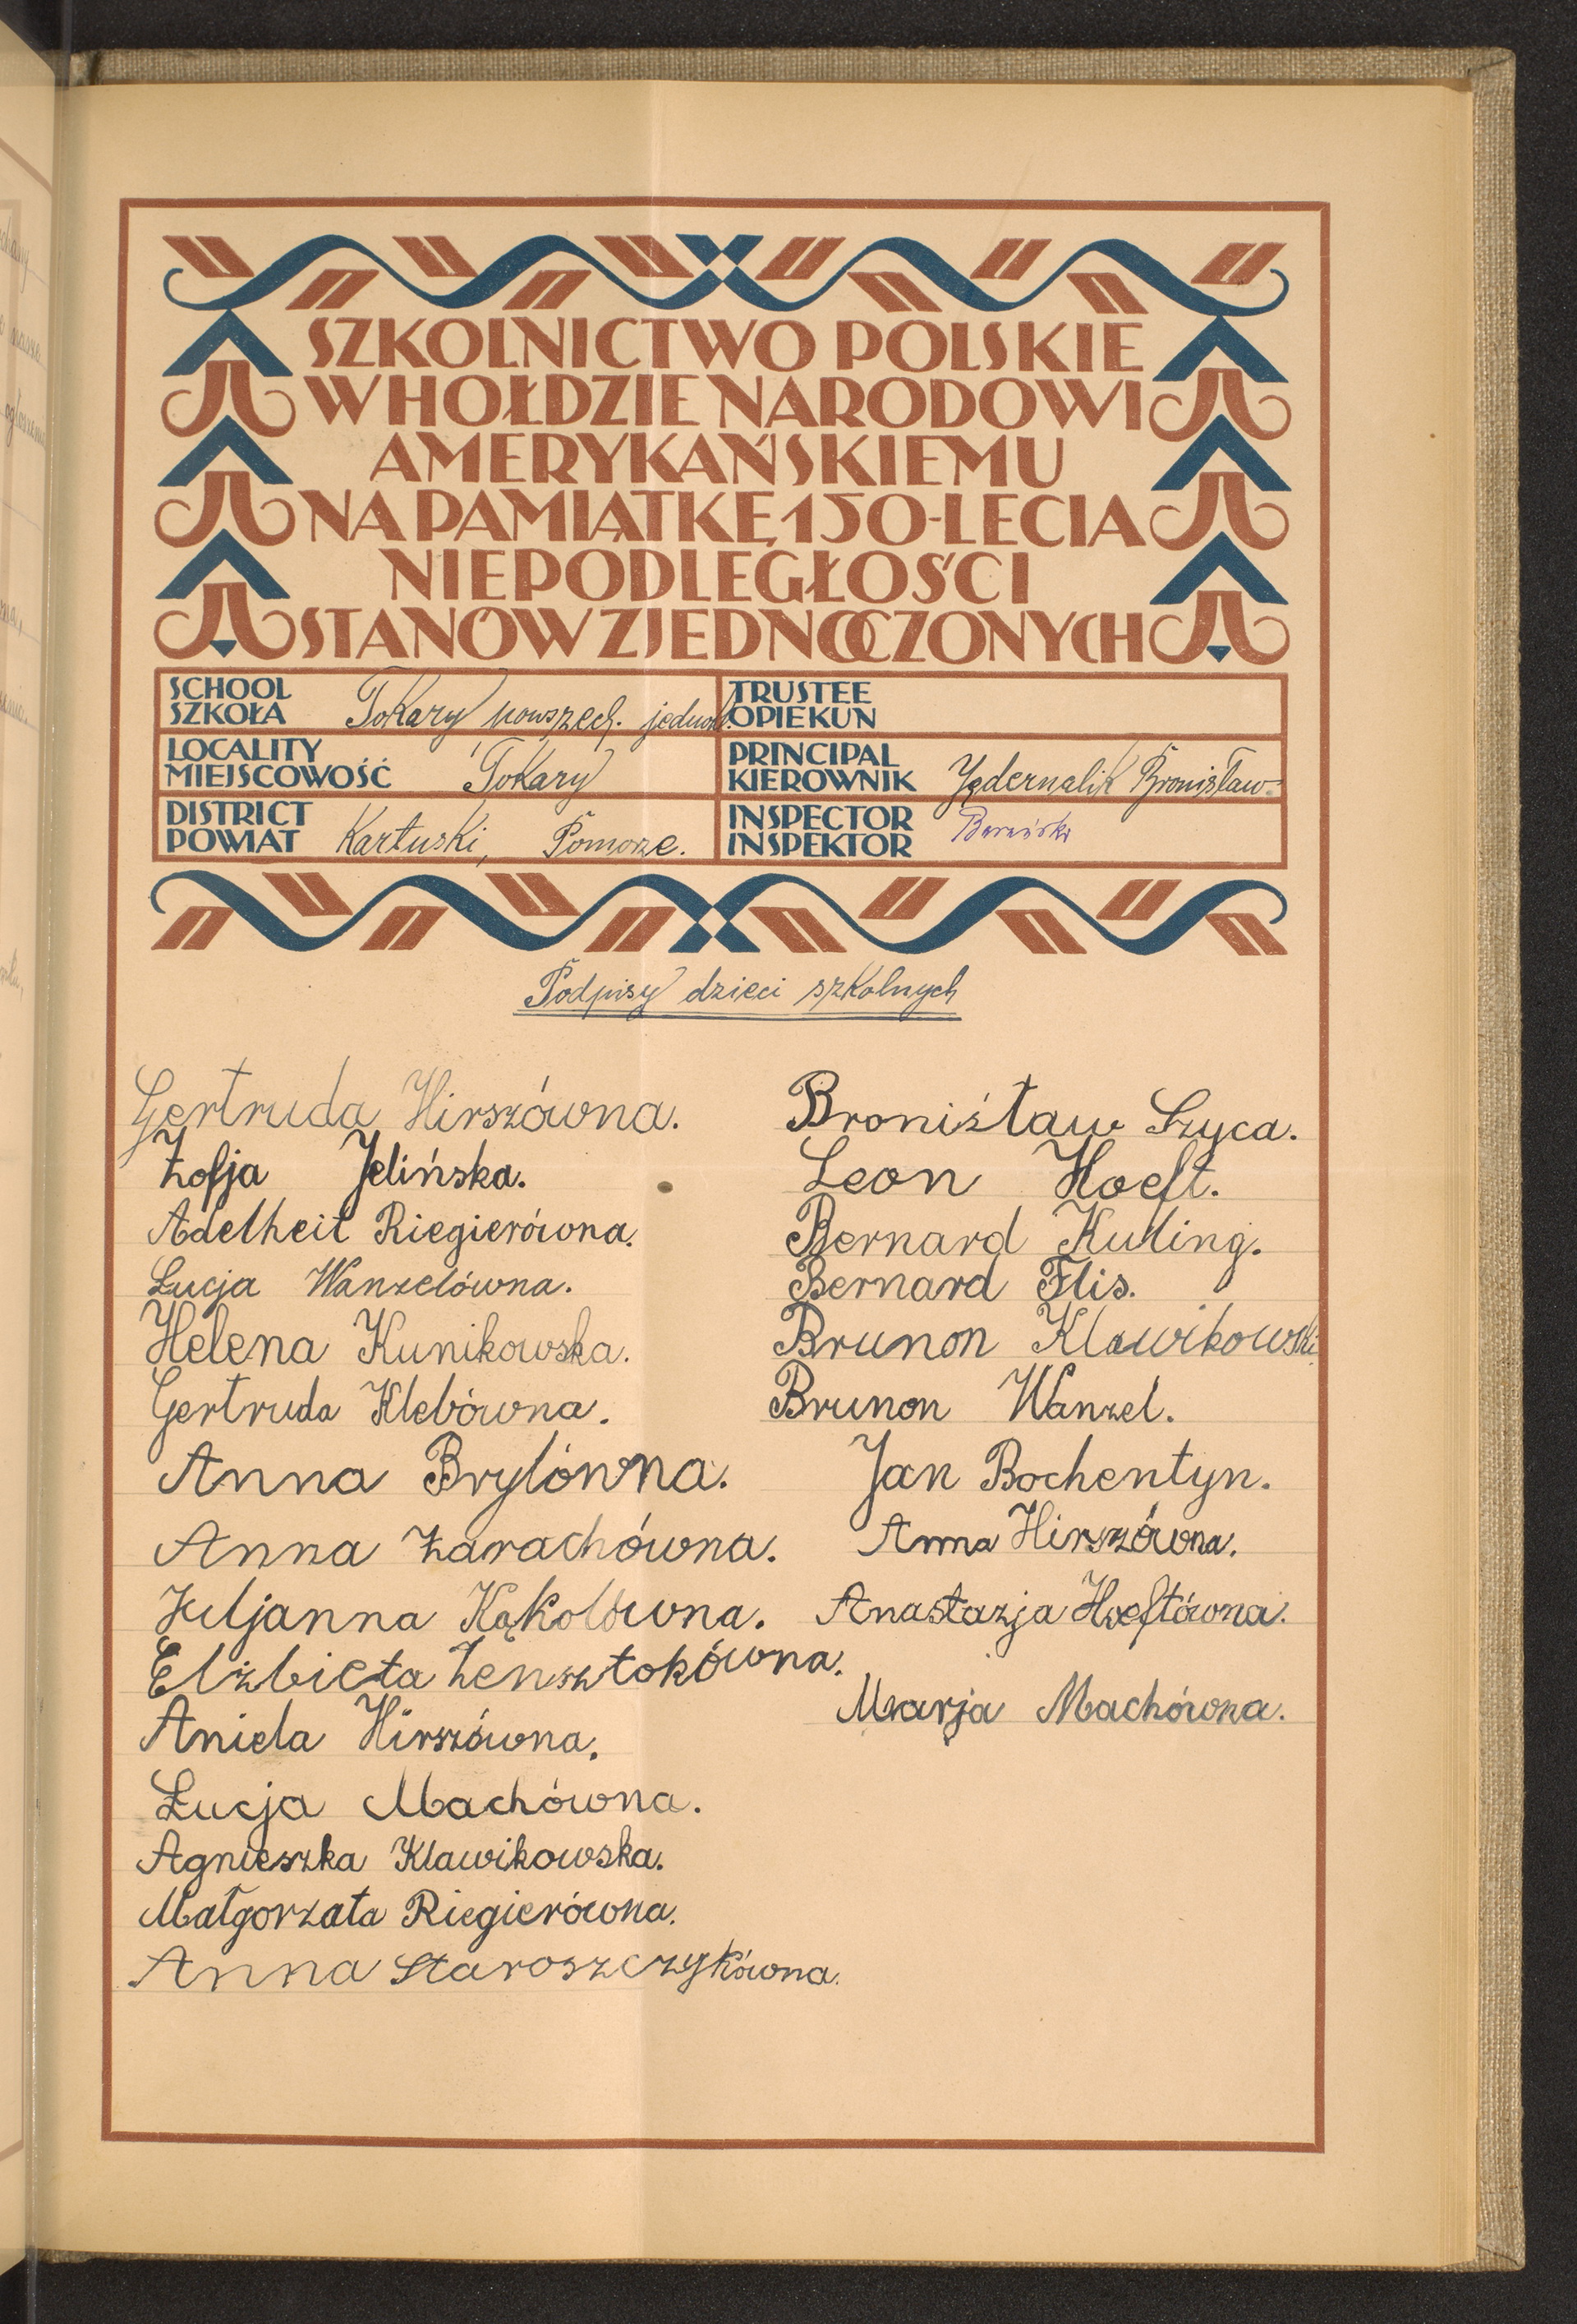 SZKOLNICTWO POLSKIE
W HOŁDZIE NARODOWI
AMERYKAŃSKIEMU
NA PAMIĄTKĘ 150-LECIA
NIEPODLEGŁOŚCI
STANÓW ZJEDNOCZONYCH
SCHOOL
SZKOŁA Tokary powszech. jednokl.
TRUSTEE
OPIEKUN
LOCALITY
MIEJSCOWOŚĆ Tokary
PRINCIPAL
KIEROWNIK Jądernalik Bronisław
DISTRICT
POWIAT Kartuski, Pomorze.
INSPECTOR
INSPEKTOR
Podpisy dzieci szkolnych
Gertruda Hirszówna.
Zofja Jelińska.
Adelheit Riegierówna.
Łucja Wanzelówna.
Helena Kunikowska.
Gertruda Klebówna.
Anna Brylówna.
Anna Żarachówna.
Juljanna Kąkolówna.
Elżbieta Zensztokówna.
Aniela Hirszówna.
Łucja Machówna.
Agnieszka Klawikowska.
Małgorzata Riegierówna.
Anna Staroszczykówna.
Bronisław Szyca.
Leon Hoeft.
Bernard Kuling.
Bernard Flis.
Brunon Klawikowski.
Brunon Wanzel.
Jan Bochentyn.
Anna Hirszówna.
Anastazja Hoeftówna.
Marja Machówna.